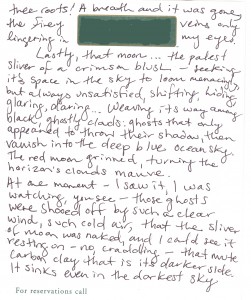 thee roots! A breath and it was gone
the firey veins only
lingering in my eyes.
Lastly, that moon... the palest
sliver of a crimson blush - seeking
it's space in the sky to loom menacingly
but always unsatisfied, shifting, hiding
glaring, daring... Weaving its way among
black ghostly clouds: ghosts that only
appeared to throw their shadow then
vanish into the deep blue ocean sky.
The red moon grinned, turning the
horizon's clouds mauve.
At one moment - I saw it, I was
watching, you see - those ghosts
were shooed off by such a clear
wind, such cold air, that the sliver
of moon was naked, and I could see it
resting on - no, craddling - that mute
carbon clay that is its darker side.
It sinks even in the darkest sky
For reservations call